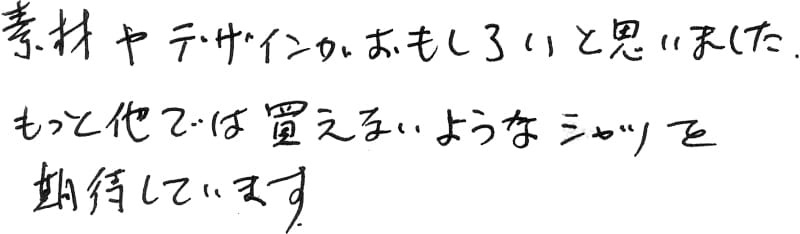 素材やデザインがおもしろいと思いました.
もっと他では買えないようなシャツを
期待しています